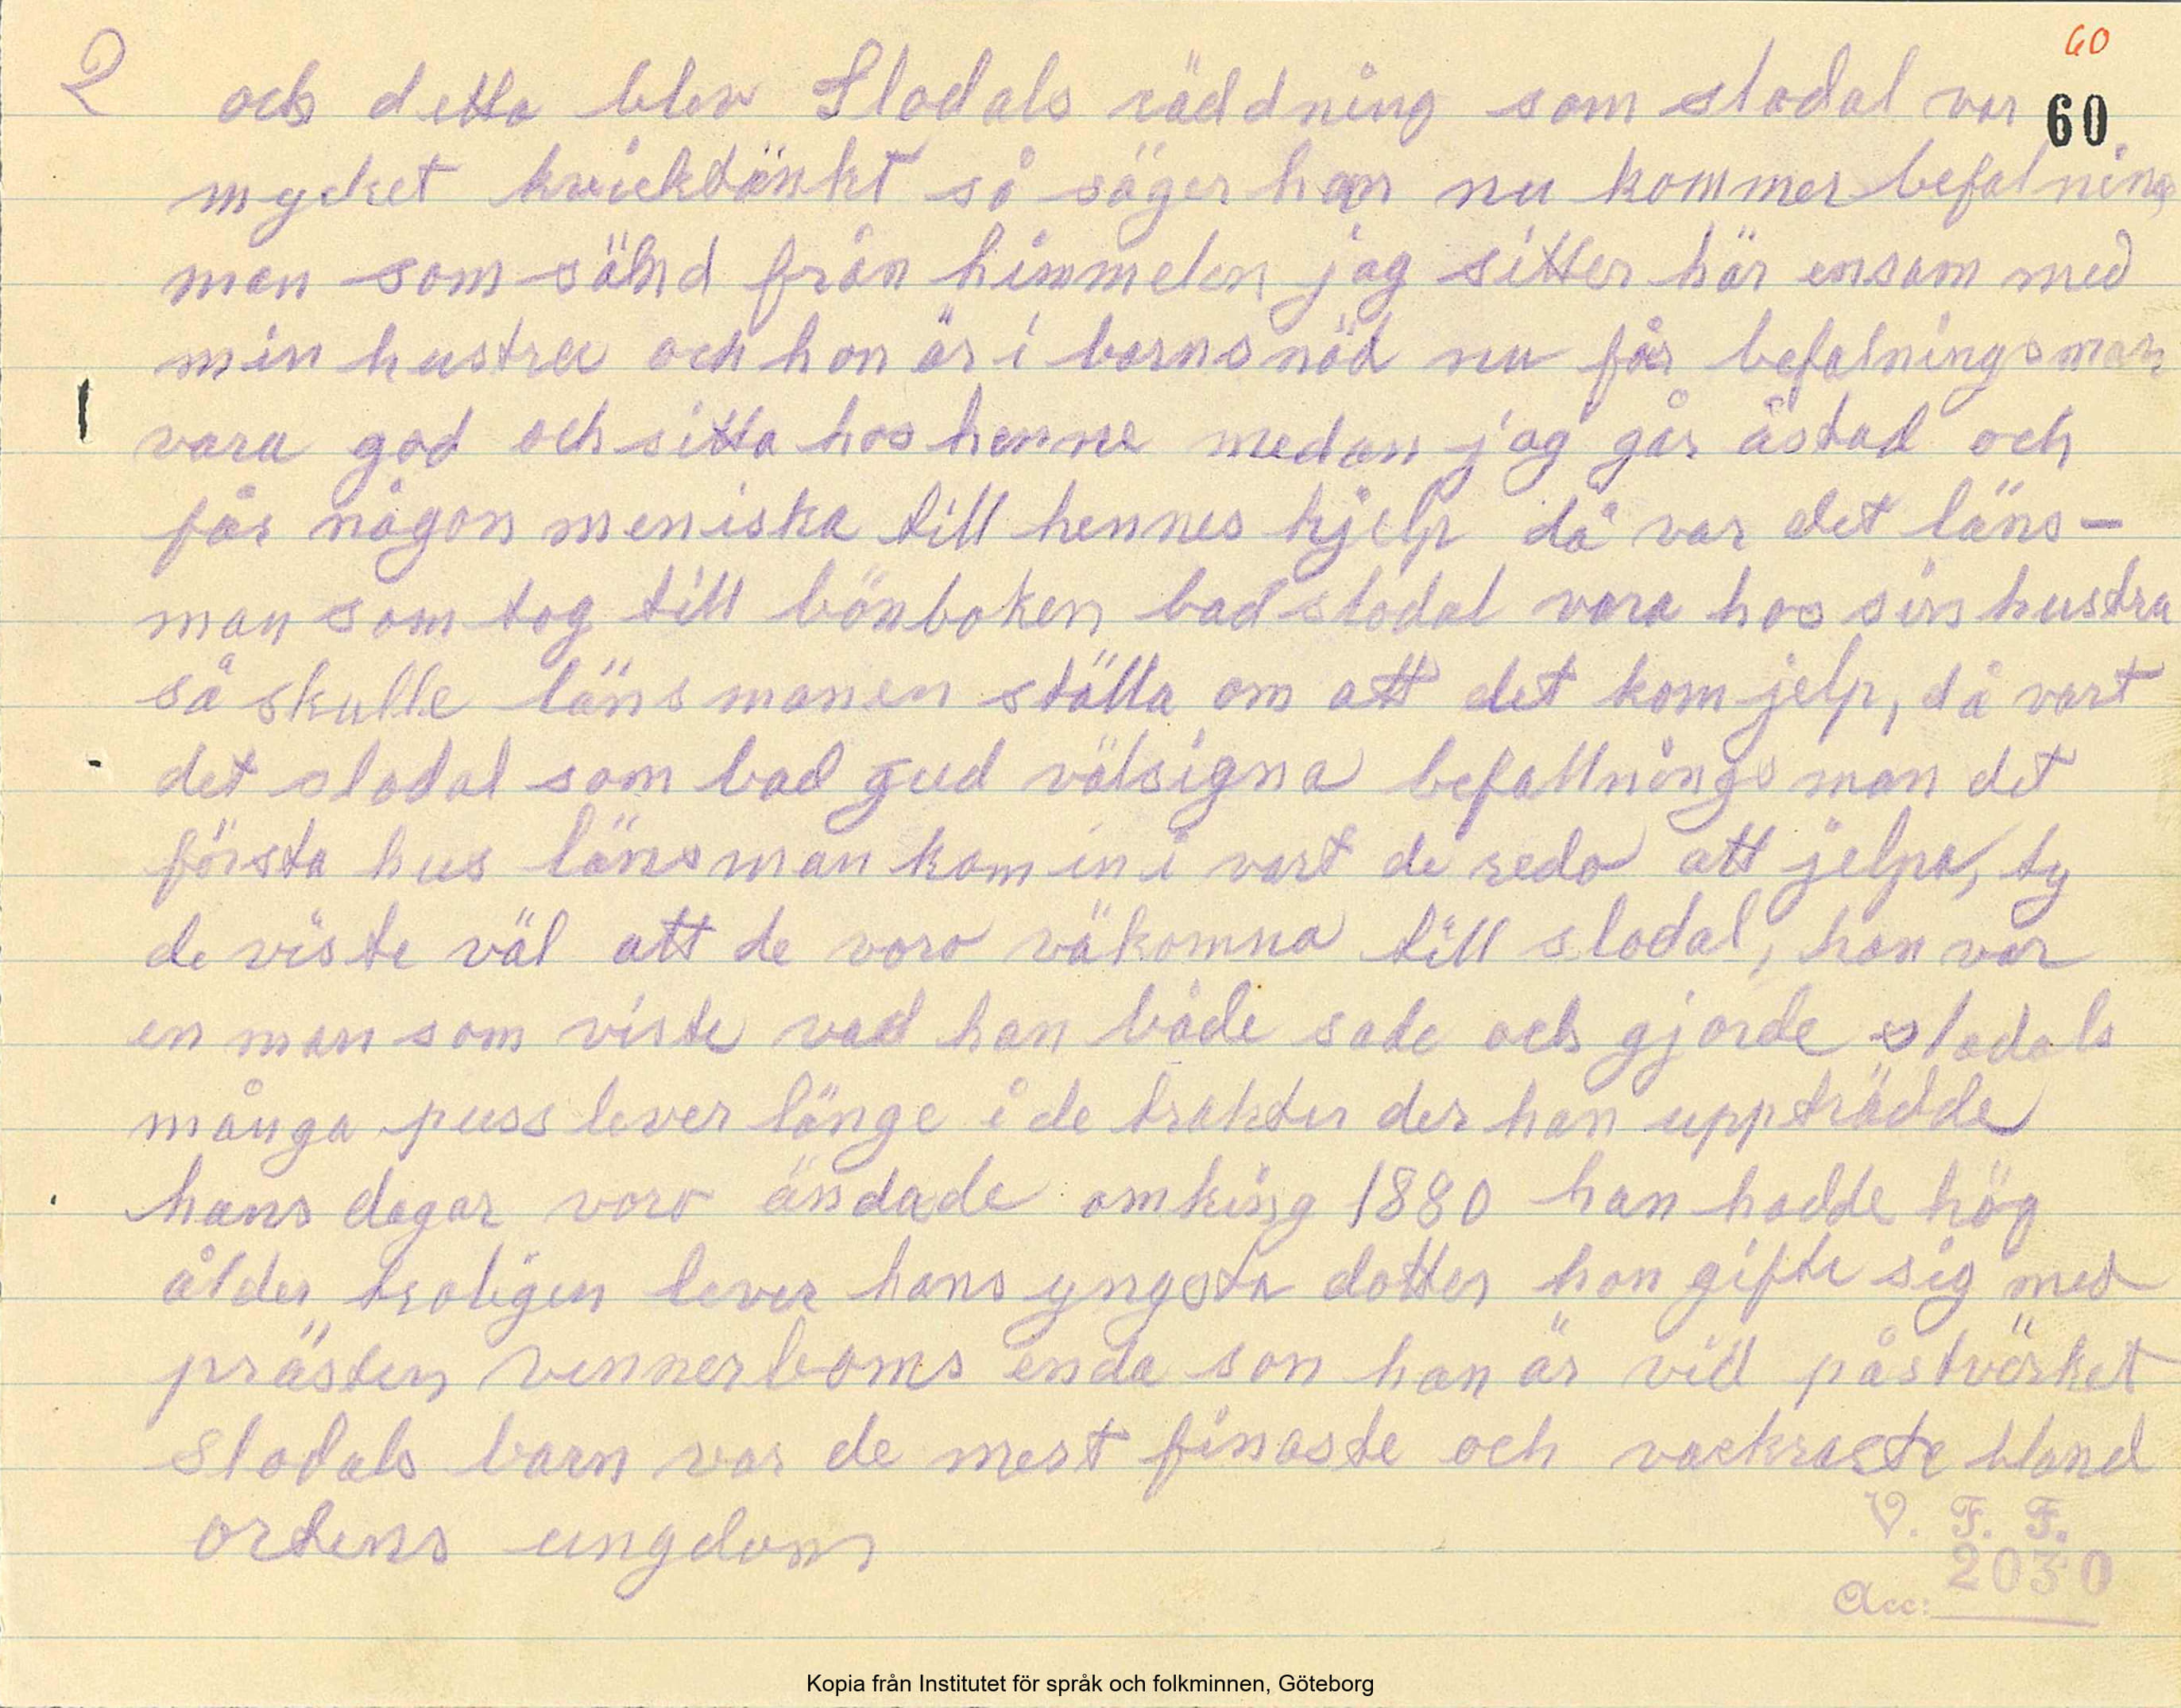 60
2 och detta blev Slodals räddning som slodal var 60
mycket kvicktänkt så säger han nu kommer befalning
man som sähd från himmelen jag sitter här ensam med
min hustru och hon är i barnsnöd nu får befalningsman
vara god och sitta hos henne medan jag går åstad och
får någon meniska till hennes hjelp då var det läns-
man som tog till bönboken bad slodal vara hos sin hustru
så skulle länsmanen ställa om att det kom jelp, då vart
det slodal som bad gud välsigna befallnings man det
första hus länsman kom in i vart de redo att jelpa, ty
de viste väl att de voro väkomna till slodal, han var
en man som viste vad han både sade och gjorde slodals
många puss lever länge i de trakter der han uppträdde
hans dagar voro ändade omking 1880 han hadde hög
ålder troligen lever hans yngsta dotter hon gifte sig med
prästen vennerboms enda son han är vid påstvörket
Slodals barn var de mest finaste och vackraste bland
ortens ungdom
V. F. F.
2030
Acc:
Kopia från Institutet för språk och folkminnen, Göteborg